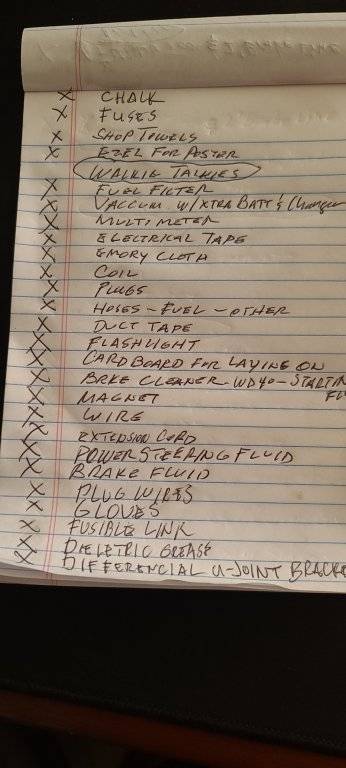 X CHALK
X FUSES
X SHOP TOWELS
X EZEL FOR POSTER
WALKIE TALKIES
X FUEL FILTER
X VACCUM W/XTRA BATT & Charger
X MULTIMETER
X ELECTRICAL TAPE
X EMORY CLOTH
X COIL
X PLUGS
X HOSES - FUEL - OTHER
X DUCT TAPE
X FLASHLIGHT
X CARDBOARD FOR LAYING ON
X BRKE CLEANER - WD40 - STARTIN
FL
X MAGNET
X WIRE
X EXTENSION CORD
X POWER STEERING FLUID
X BRAKE FLUID
X PLUG WIRES
X GLOVES
X FUSIBLE LINK
X DIELETRIC GREASE
X DIFFERENCIAL U-JOINT BRACK